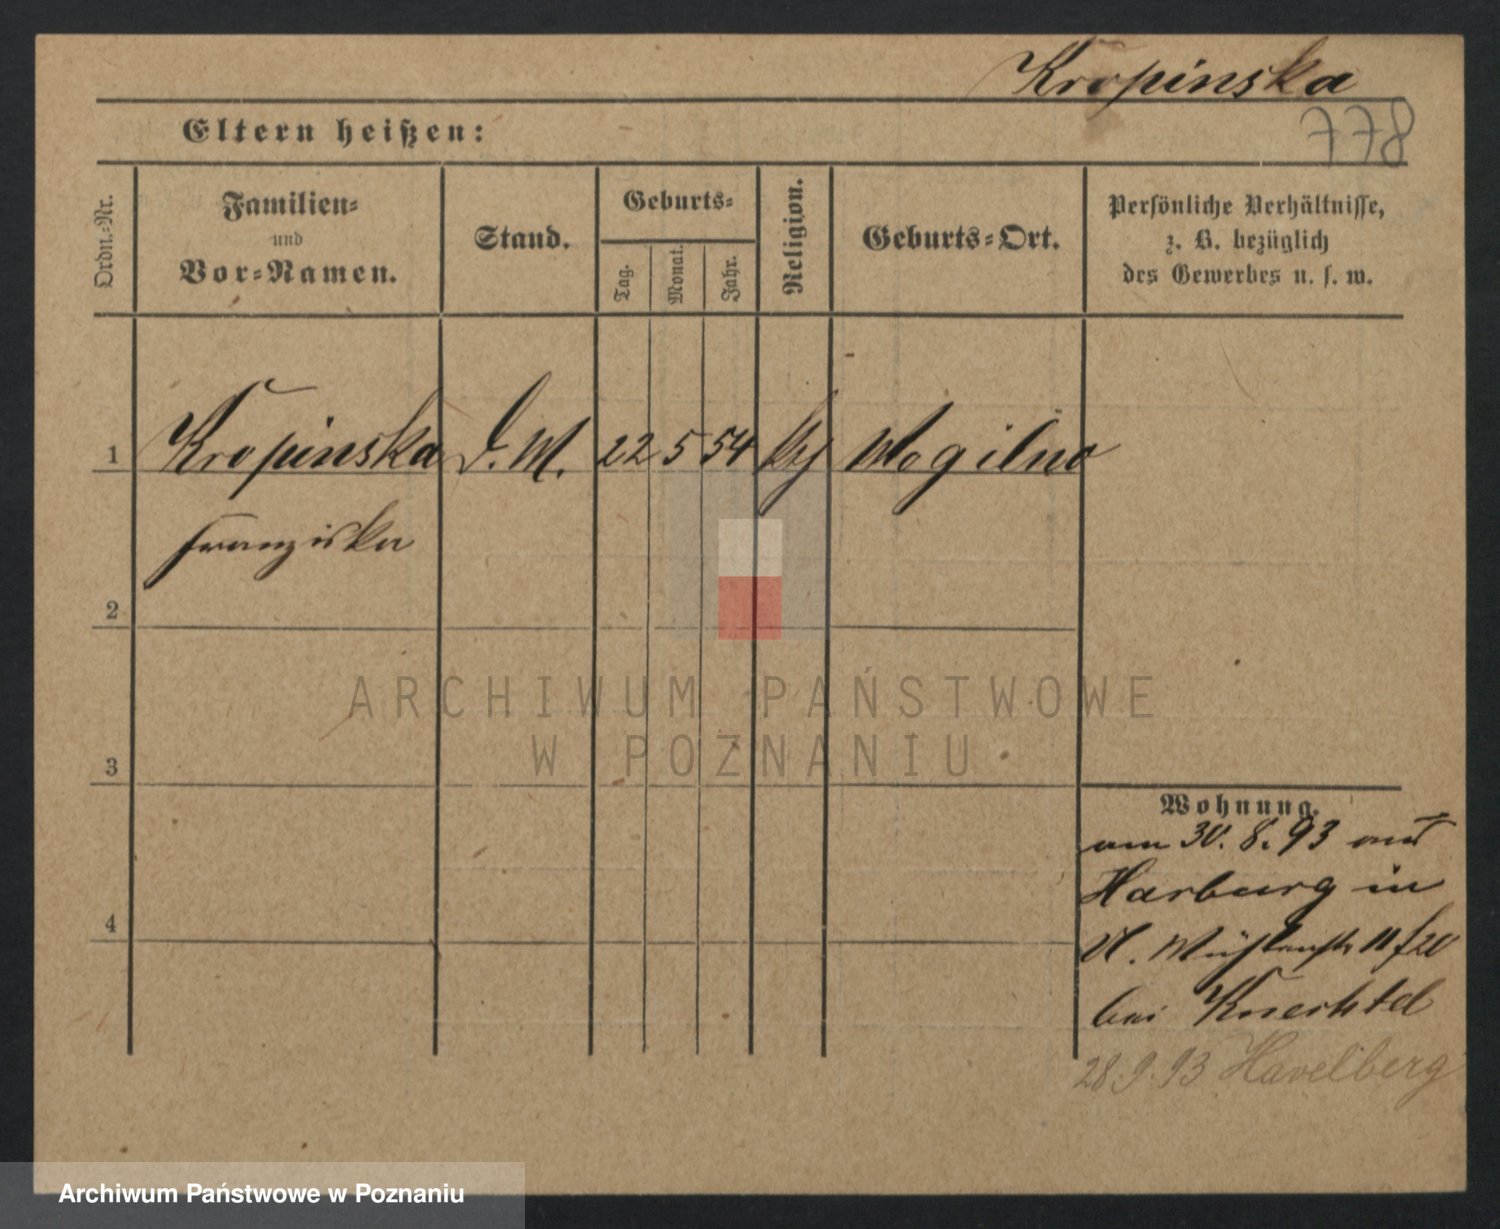 Kropinska
778
Eltern heißen:
Ordn.-Nr.
Familien-
und
Vor-Namen.
Stand.
Geburts-
Tag.
Monat.
Jahr.
Religion.
Geburts-Ort.
Persönliche Verhältnisse,
z. B. bezüglich
des Gewerbes u. s. w.
1 Kropinska D. M. 22 5 54 Mogilno
Franziska
2
3
4
Wohnung.
am 30. 8. 93 aus
Harburg in
bei Knechtel
28.9.93 Havelberg
ARCHIWUM PAŃSTWOWE
W POZNANIU
Archiwum Państwowe w Poznaniu